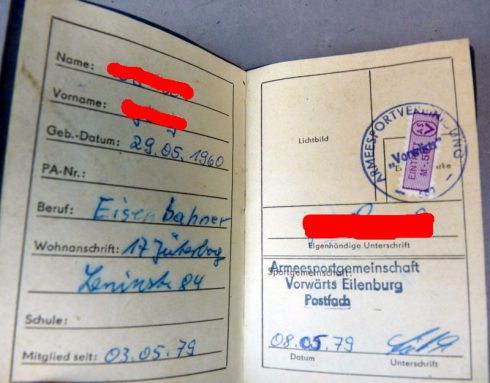 Name:
Vorname:
Geb.-Datum: 29.05.1960
PA-Nr.:
Beruf: Eisenbahner
Wohnanschrift: 17 Jüterbog
Leninstr 84
Schule:
Mitglied seit: 03.05.79
Lichtbild
ARMEESPORTVEREINIGUNG
"Vorwärts"
ASV
EINTRITT
M -,50
Eigenhändige Unterschrift
Sportgemeinschaft:
Armeesportgemeinschaft
Vorwärts Eilenburg
Postfach
08.05.79
Datum
Unterschrift